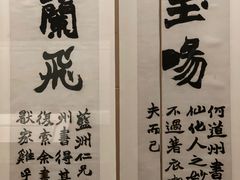 何道州書
仙化人之妙
不過著衣
夫而已
蘭飛
藍洲仁兄
州書得其
復索余書
厭家雞乎